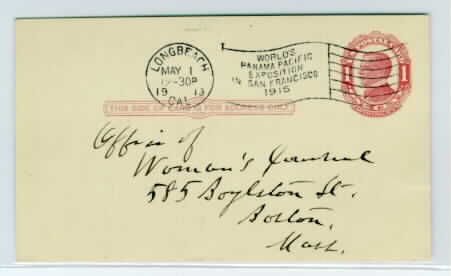 LONGBEACH
MAY 1
12-30P
1913
CAL.
WORLD'S
PANAMA PACIFIC
EXPOSITION
IN SAN FRANCISCO
1915
1 1
THIS SIDE OF CARD IS FOR ADDRESS ONLY
Office of
Woman's Journal
585 Boylston St.
Boston,
Mass.